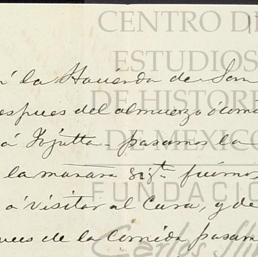 CENTRO DE
ESTUDIOS
DE HISTOR
DE MEXICO
FUNDACIO
Carlos Sli
á la Hacienda de San
espues del almuerzo
á pasamos la
la mañana sigte. fuimos
a visitar al Cura, y de
ues de la Comida pasam